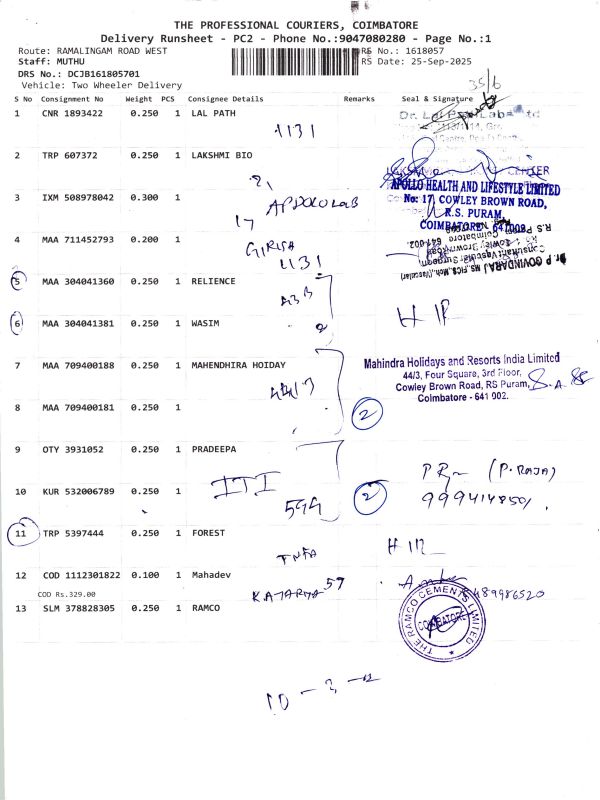 THE PROFESSIONAL COURIERS, COIMBATORE
Delivery Runsheet - PC2 - Phone No.:9047080280 - Page No.:1
Route: RAMALINGAM ROAD WEST
RS No.: 1618057
Staff: MUTHU
RS Date: 25-Sep-2025
DRS No.: DCJB161805701
Vehicle: Two Wheeler Delivery
35/6
S No Consignment No Weight PCS Consignee Details Remarks Seal & Signature
1 CNR 1893422 0.250 1 LAL PATH
1131
2 TRP 607372 0.250 1 LAKSHMI BIO
CENTER
3 IXM 508978042 0.300 1
APOLLO LAB
APOLLO HEALTH AND LIFESTYLE LIMITED
No: 17, COWLEY BROWN ROAD,
R.S. PURAM,
COIMBATORE - 641002
4 MAA 711452793 0.200 1
GIRISH
1131
Dr. P GOVINDARAJ
5 MAA 304041360 0.250 1 RELIENCE
6 MAA 304041381 0.250 1 WASIM
7 MAA 709400188 0.250 1 MAHENDHIRA HOIDAY
Mahindra Holidays and Resorts India Limited
44/3, Four Square, 3rd Floor,
Cowley Brown Road, RS Puram,
Coimbatore - 641 002.
8 MAA 709400181 0.250 1
2
9 OTY 3931052 0.250 1 PRADEEPA
(P. RAJA)
10 KUR 532006789 0.250 1
ITI
599
2
11 TRP 5397444 0.250 1 FOREST
12 COD 1112301822 0.100 1 Mahadev
COD Rs.329.00
KATARYA 57
13 SLM 378828305 0.250 1 RAMCO
THE RAMCO CEMENTS LIMITED
COIMBATORE